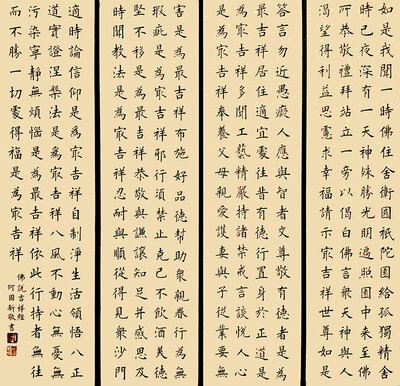 如是我聞一時佛住舍衛國祇陀園給孤獨精舍
時已夜深有一天神殊勝光明遍照園中來至佛
所恭敬禮拜站立一旁以偈白佛言眾天神與人
渴望得利益思慮求幸福請示最吉祥世尊如是
答言勿近愚癡人應與智者交尊敬有德者是為
最吉祥居住適宜處往昔有德行置身於正道是
為最吉祥多聞工藝精嚴持諸禁戒言談悅人心
是為最吉祥奉養父母親愛護妻與子從業要無
害是為最吉祥布施好品德幫助眾親眷行為無
瑕疵是為最吉祥邪行須禁止克己不飲酒美德
堅不移是為最吉祥恭敬與謙讓知足並感恩及
時聞教法是為最吉祥忍耐與順從得見眾沙門
適時論信仰是為最吉祥自制淨生活領悟八正
道實證涅槃法是為最吉祥八風不動心無憂無
污染寧靜無煩惱是為最吉祥依此行持者無往
而不勝一切處得福是為最吉祥
佛說吉祥經
何國新敬書